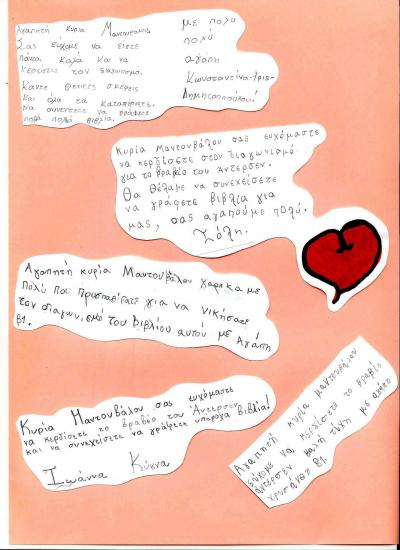 Αγαπητή κυρία Μαντουβάλου
Σας εύχομε να είστε
πάντα καλά και να
κερδίσετε τον διαγωνισμό.
Κάντε θετικές σκέψεις
και όλα τα καταφέρετε.
Να συνεχίσετε να γράφετε
πολλά πολλά βιβλία.
με πολύ
πολύ
αγάπη
Κωνσταντίνα-Ίρις-
Δημητροπούλου!
Κυρία Μαντουβάλου σας ευχόμαστε
να κερδίσετε στον διαγωνισμό
για το βραβείο του Άντερσεν.
Θα θέλαμε να συνεχίσετε
να γράφετε βιβλία για
μας, σας αγαπούμε πολύ.
Ζόλη.
Αγαπητή κυρία Μαντουβάλου χάρηκα με
πολύ που προσπαθήσατε για να νικήσατε
τον διαγωνισμό του βιβλίου αυτού με Αγάπη
Β1.
Κυρία Μαντουβάλου σας ευχόμαστε
να κερδίσετε το βραβείο του Άντερσεν
και να συνεχίσετε να γράφετε υπέροχα βιβλία!
Ιωάννα Κύκνα
Αγαπητή κυρία μαντουβάλου
εύχομε να κερδίσετε το βραβείο
άντερσεν καλή τύχη με αγάπη
χρυσάνθη Β1.